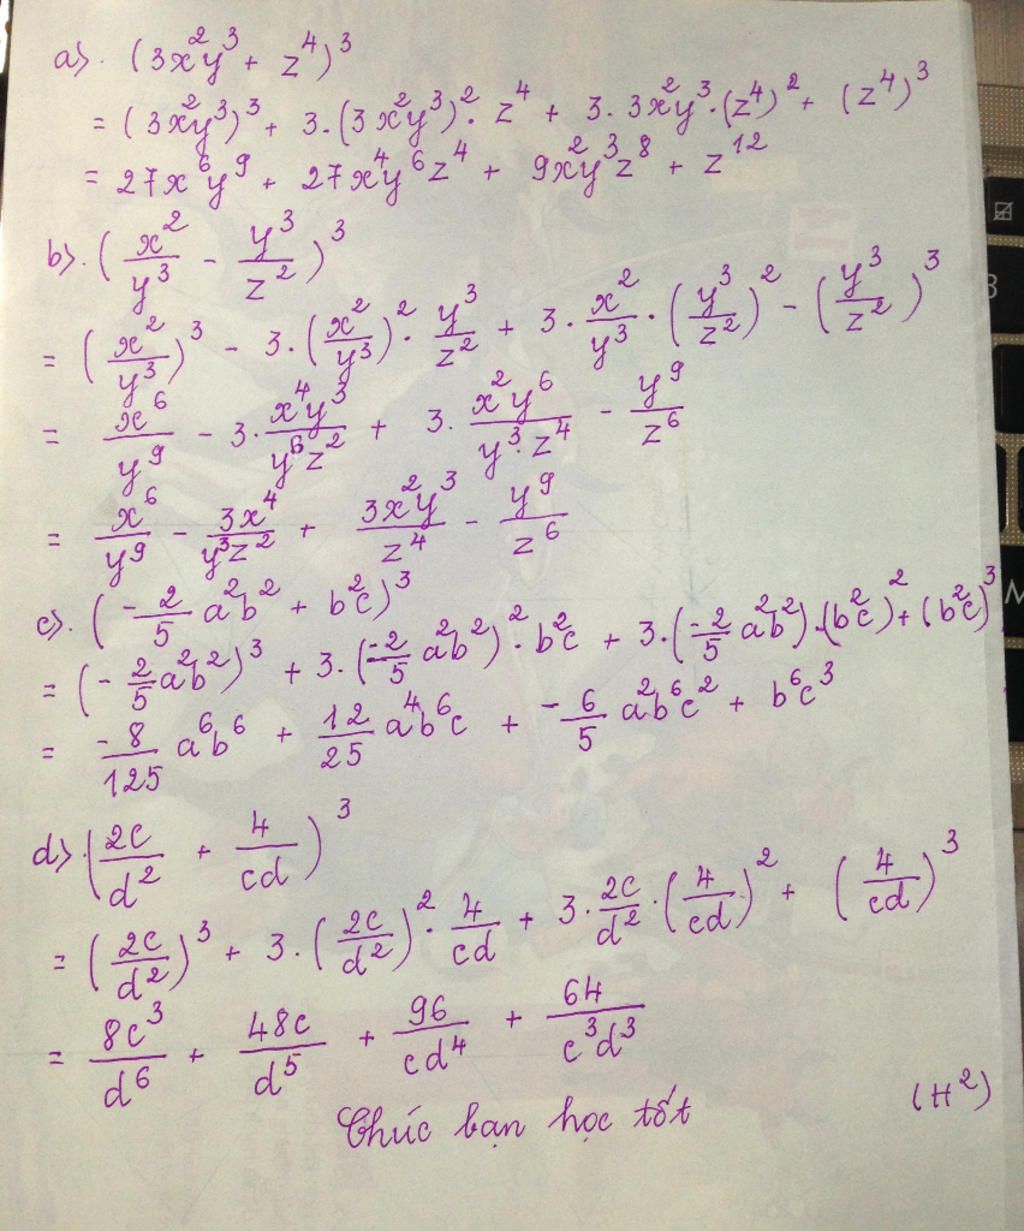 a). (3x²y³ + z⁴)³
= (3x²y³)³ + 3.(3x²y³)². z⁴ + 3. 3x²y³.(z⁴)² + (z⁴)³
= 27x⁶y⁹ + 27x⁴y⁶z⁴ + 9x²y³z⁸ + z¹²
b). (x²/y³ - y³/z²)³
= (x²/y³)³ - 3.(x²/y³)². y³/z² + 3. x²/y³ . (y³/z²)² - (y³/z²)³
= x⁶/y⁹ - 3. x⁴y³/y⁶z² + 3. x²y⁶/y³.z⁴ - y⁹/z⁶
= x⁶/y⁹ - 3x⁴/y³z² + 3x²y³/z⁴ - y⁹/z⁶
c). (-2/5 a²b² + b²c)³
= (-2/5 a²b²)³ + 3.(-2/5 a²b²)². b²c + 3.(-2/5 a²b²).(b²c)² + (b²c)³
= -8/125 a⁶b⁶ + 12/25 a⁴b⁶c + -6/5 a²b⁶c² + b⁶c³
d). (2c/d² + 4/cd)³
= (2c/d²)³ + 3.(2c/d²)². 4/cd + 3. 2c/d² . (4/cd)² + (4/cd)³
= 8c³/d⁶ + 48c/d⁵ + 96/cd⁴ + 64/c³d³
Chúc bạn học tốt (H²)